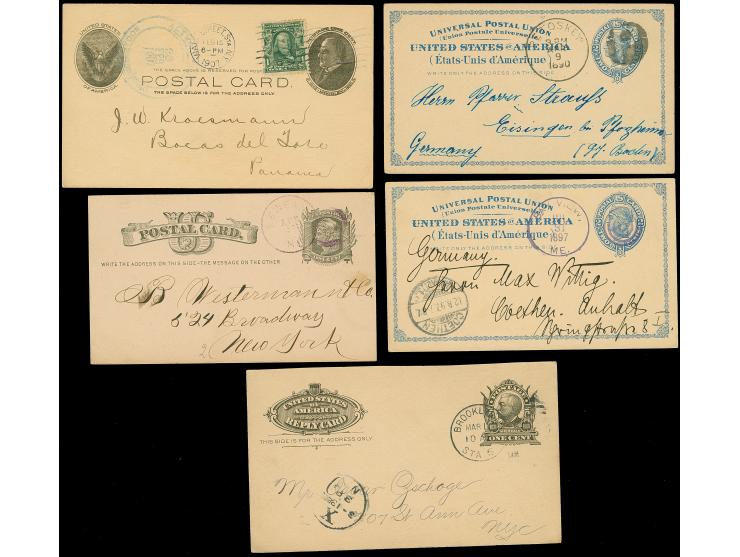 FEB 15
6-PM
1907
POSTAL CARD.
THE SPACE ABOVE IS RESERVED FOR POSTMARK.
THE SPACE BELOW IS FOR THE ADDRESS ONLY.
J. W. Kroesmann
Bocas del Toro
Panama
UNIVERSAL POSTAL UNION
(Union Postale Universelle)
UNITED STATES OF AMERICA
(États-Unis d'Amérique)
WRITE ONLY THE ADDRESS ON THIS SIDE
9
1890
Herrn Pfarrer Strauss
Eisingen bei Pforzheim
Germany
POSTAL CARD.
WRITE THE ADDRESS ON THIS SIDE - THE MESSAGE ON THE OTHER
ONE CENT
B Westermann & Co.
524 Broadway
New York
UNIVERSAL POSTAL UNION
(Union Postale Universelle)
UNITED STATES OF AMERICA
(États-Unis d'Amérique)
WRITE ONLY THE ADDRESS ON THIS SIDE
1897
ME.
Germany.
Herrn Max Wittig.
Coethen. Anhalt
COETHEN
12.8.97
UNITED STATES
OF
AMERICA
REPLY CARD
THIS SIDE IS FOR THE ADDRESS ONLY.
BROOKLYN
MAR
10
STA
ONE CENT
Mr Oscar Zschoge
207 St Ann Ave
NYC